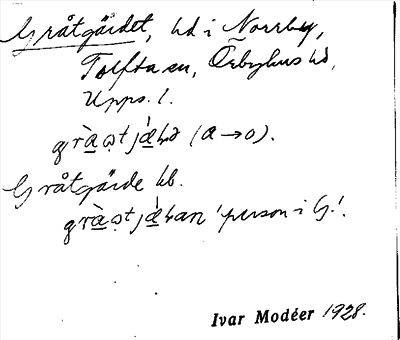 Gråtgärdet, hd i Norrby,
Tolfta sn, Örbyhus hd,
Upps. l.
(a → o).
Gråtgärde hb.
'person i G.'.
Ivar Modéer 1928.